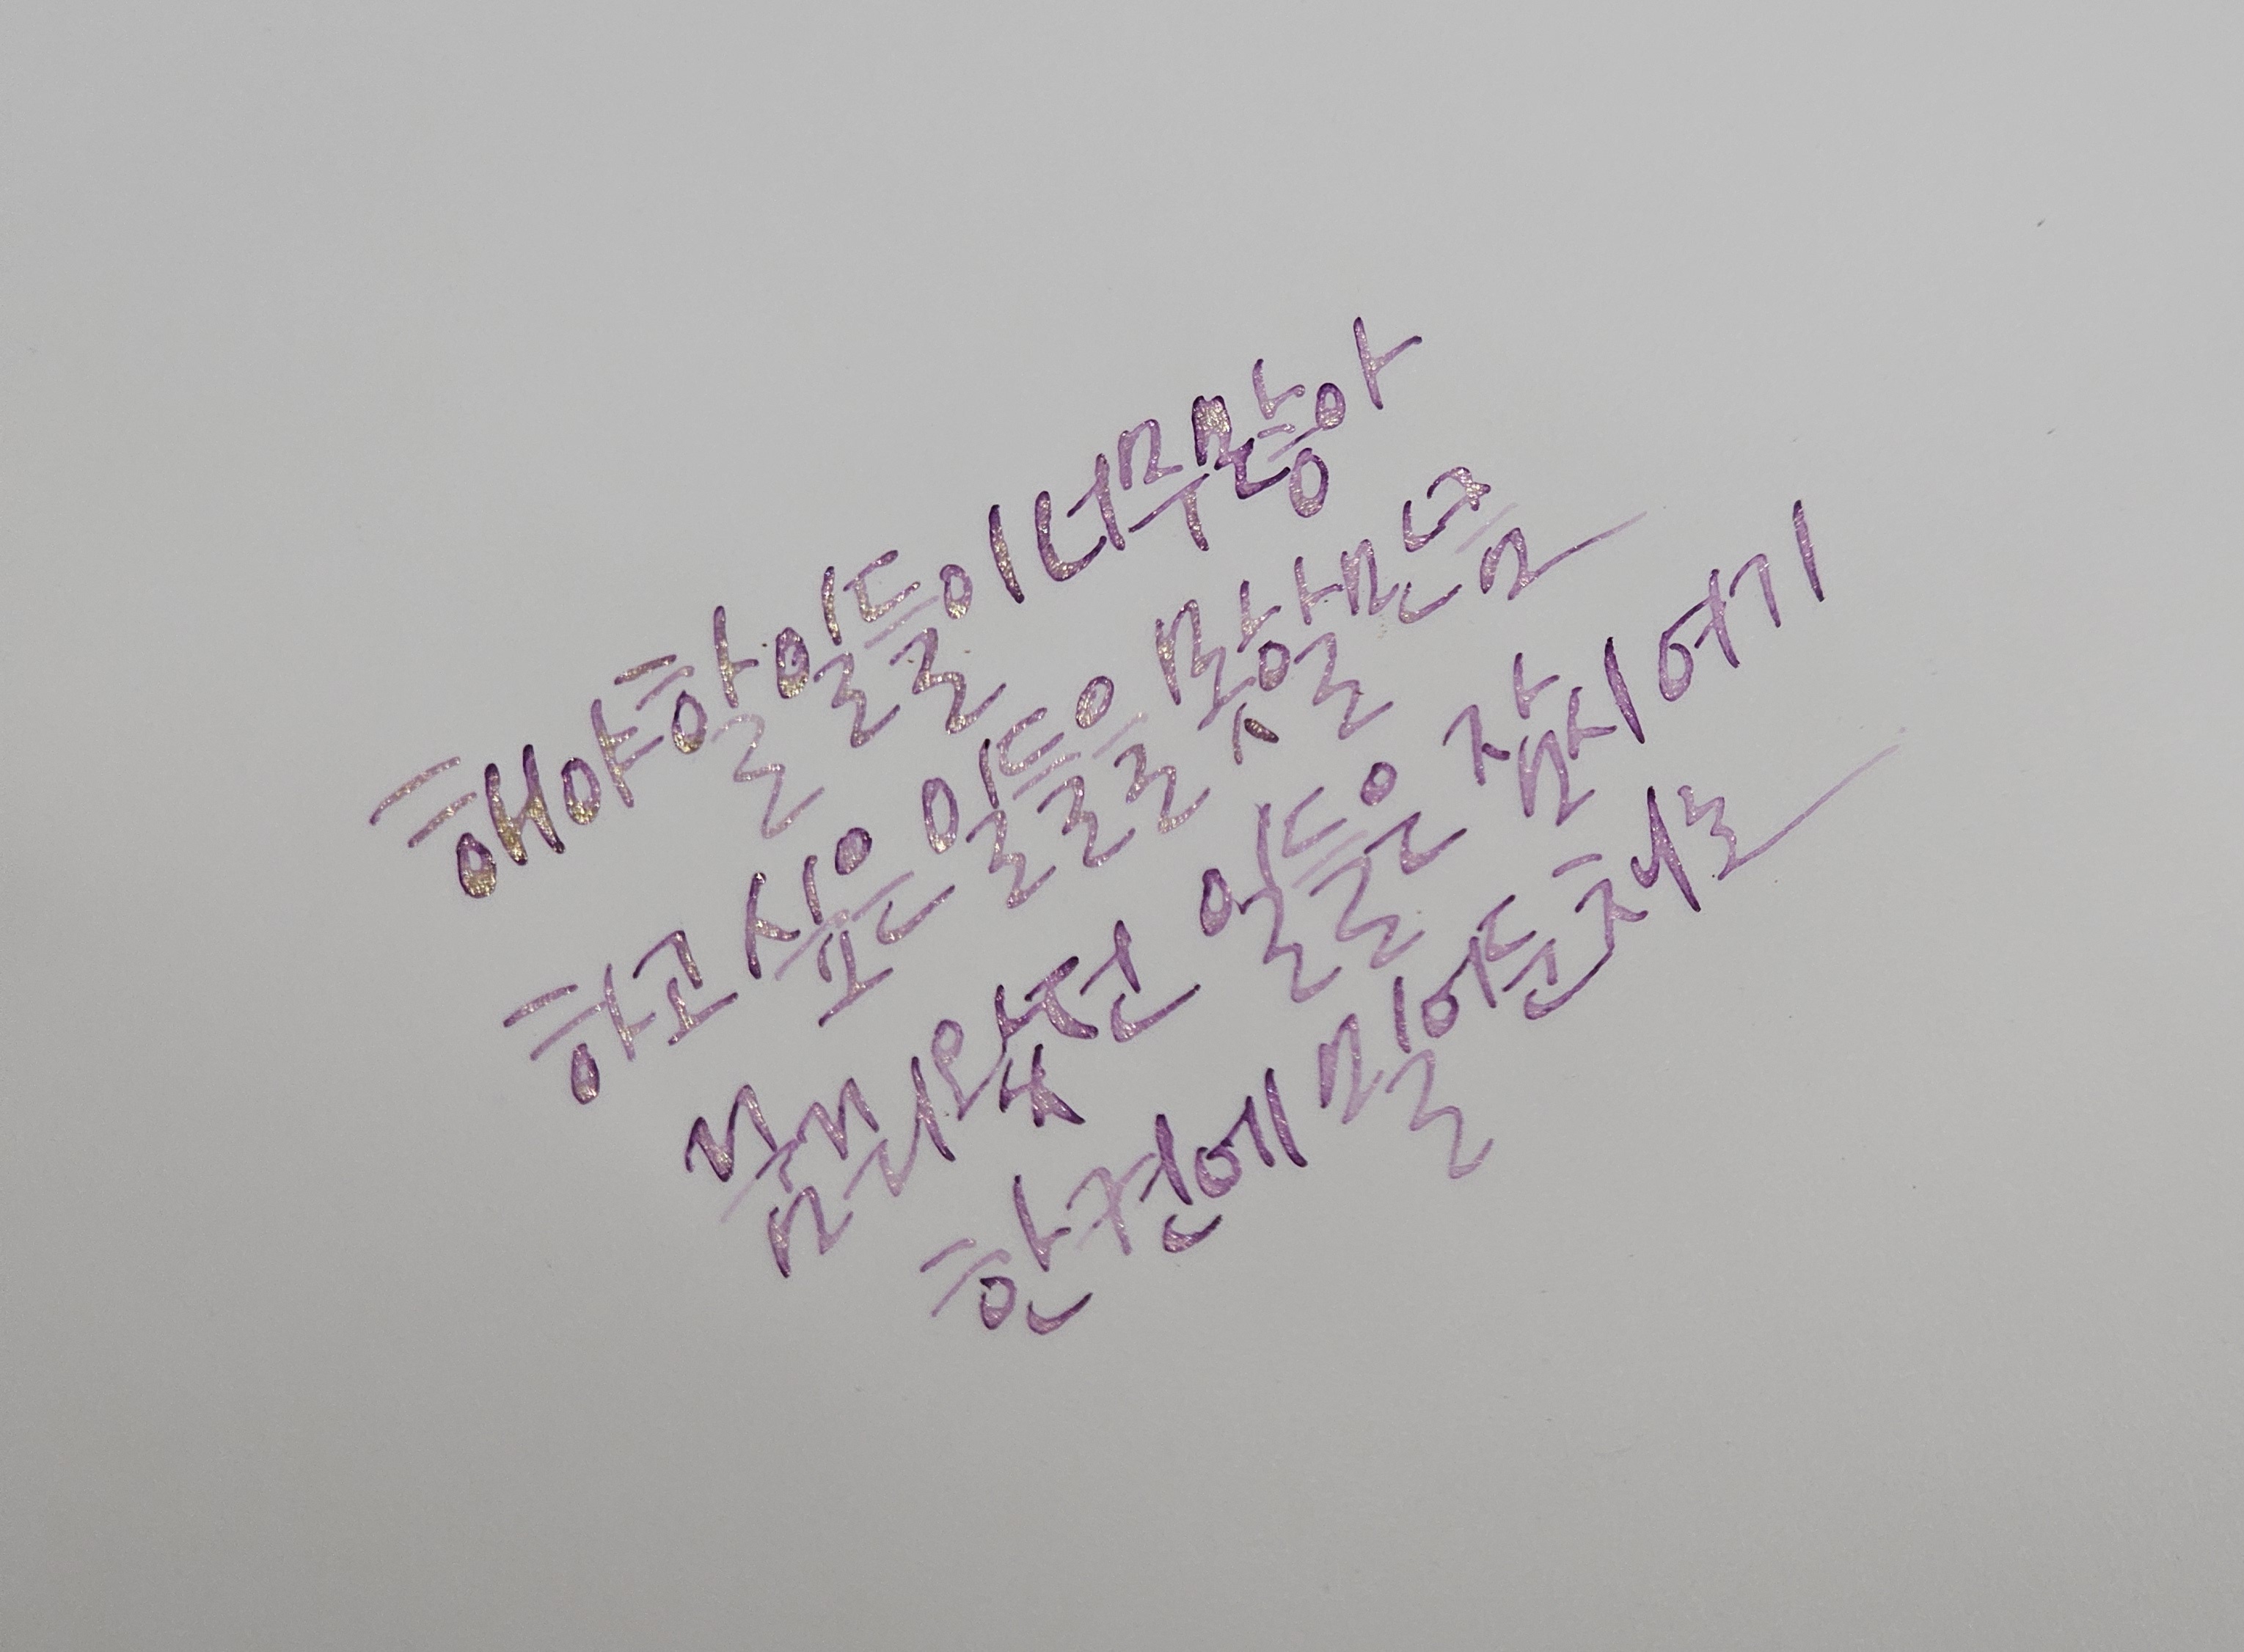 해야할일들이너무많아
하고싶은 일들을 못할만큼
꿈꿔왔던 일들은 잠시여기
한켠에 밀어둔채로